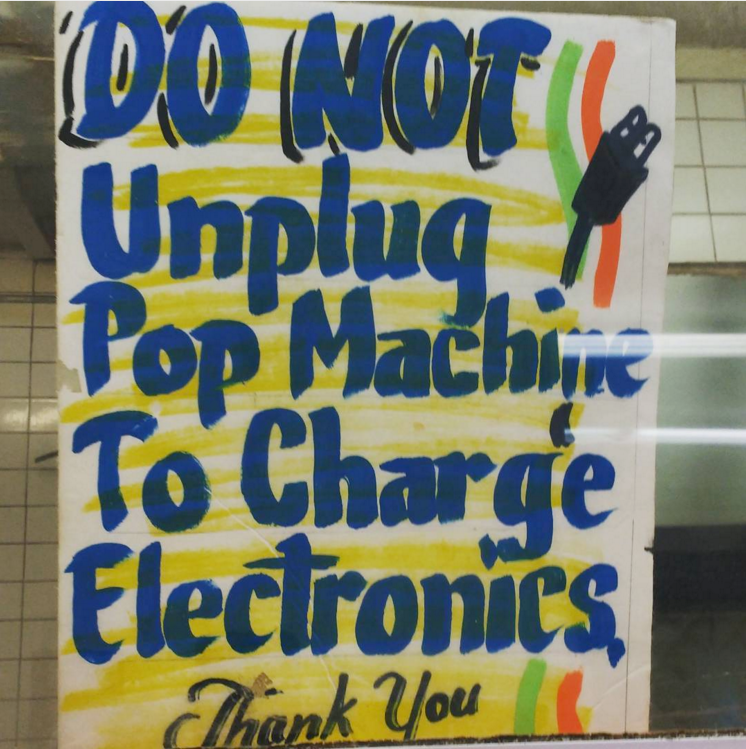 DO NOT
Unplug
Pop Machine
To Charge
Electronics,
Thank You